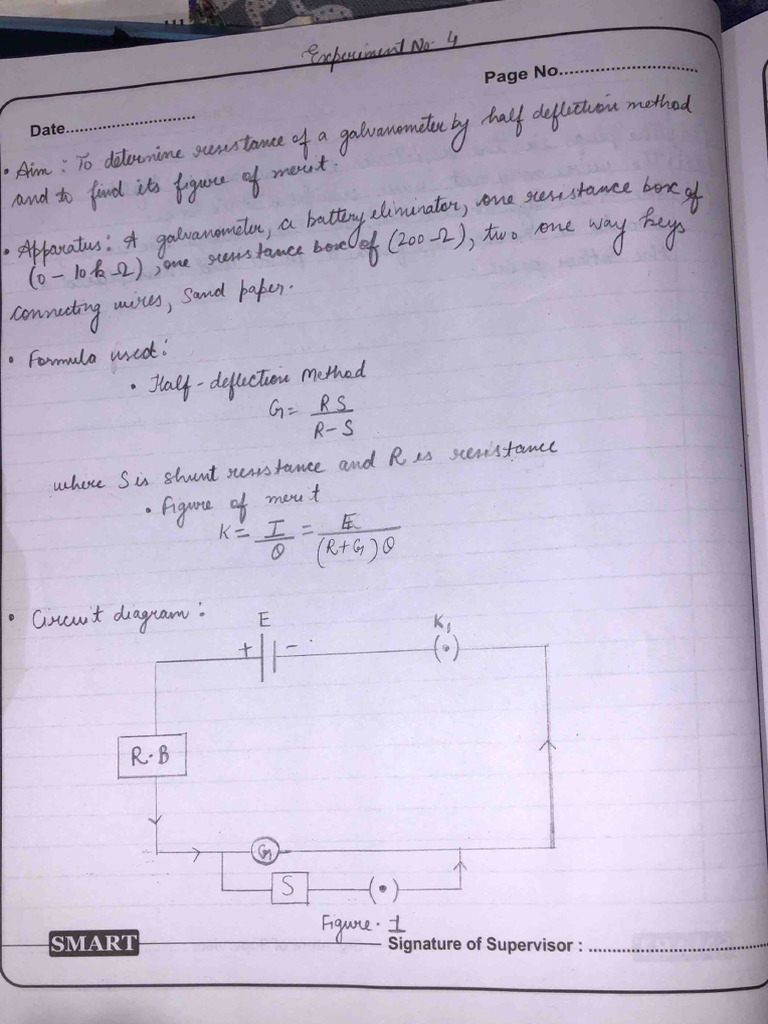 Experiment No. 4
Page No.
Date.
• Aim : To determine resistance of a galvanometer by half deflection method
and to find its figure of merit.
• Apparatus: A galvanometer, a battery eliminator, one resistance box of
(0-10k Ω), one resistance box of (200-Ω), two one way keys
connecting wires, sand paper.
• Formula used:
• Half-deflection Method
G = RS / R-S
where S is shunt resistance and R is resistance
• Figure of merit
K = I / θ = E / (R+G) θ
• Circuit diagram :
E
K1
+ -
R.B
G
S
Figure. 1
SMART
Signature of Supervisor :